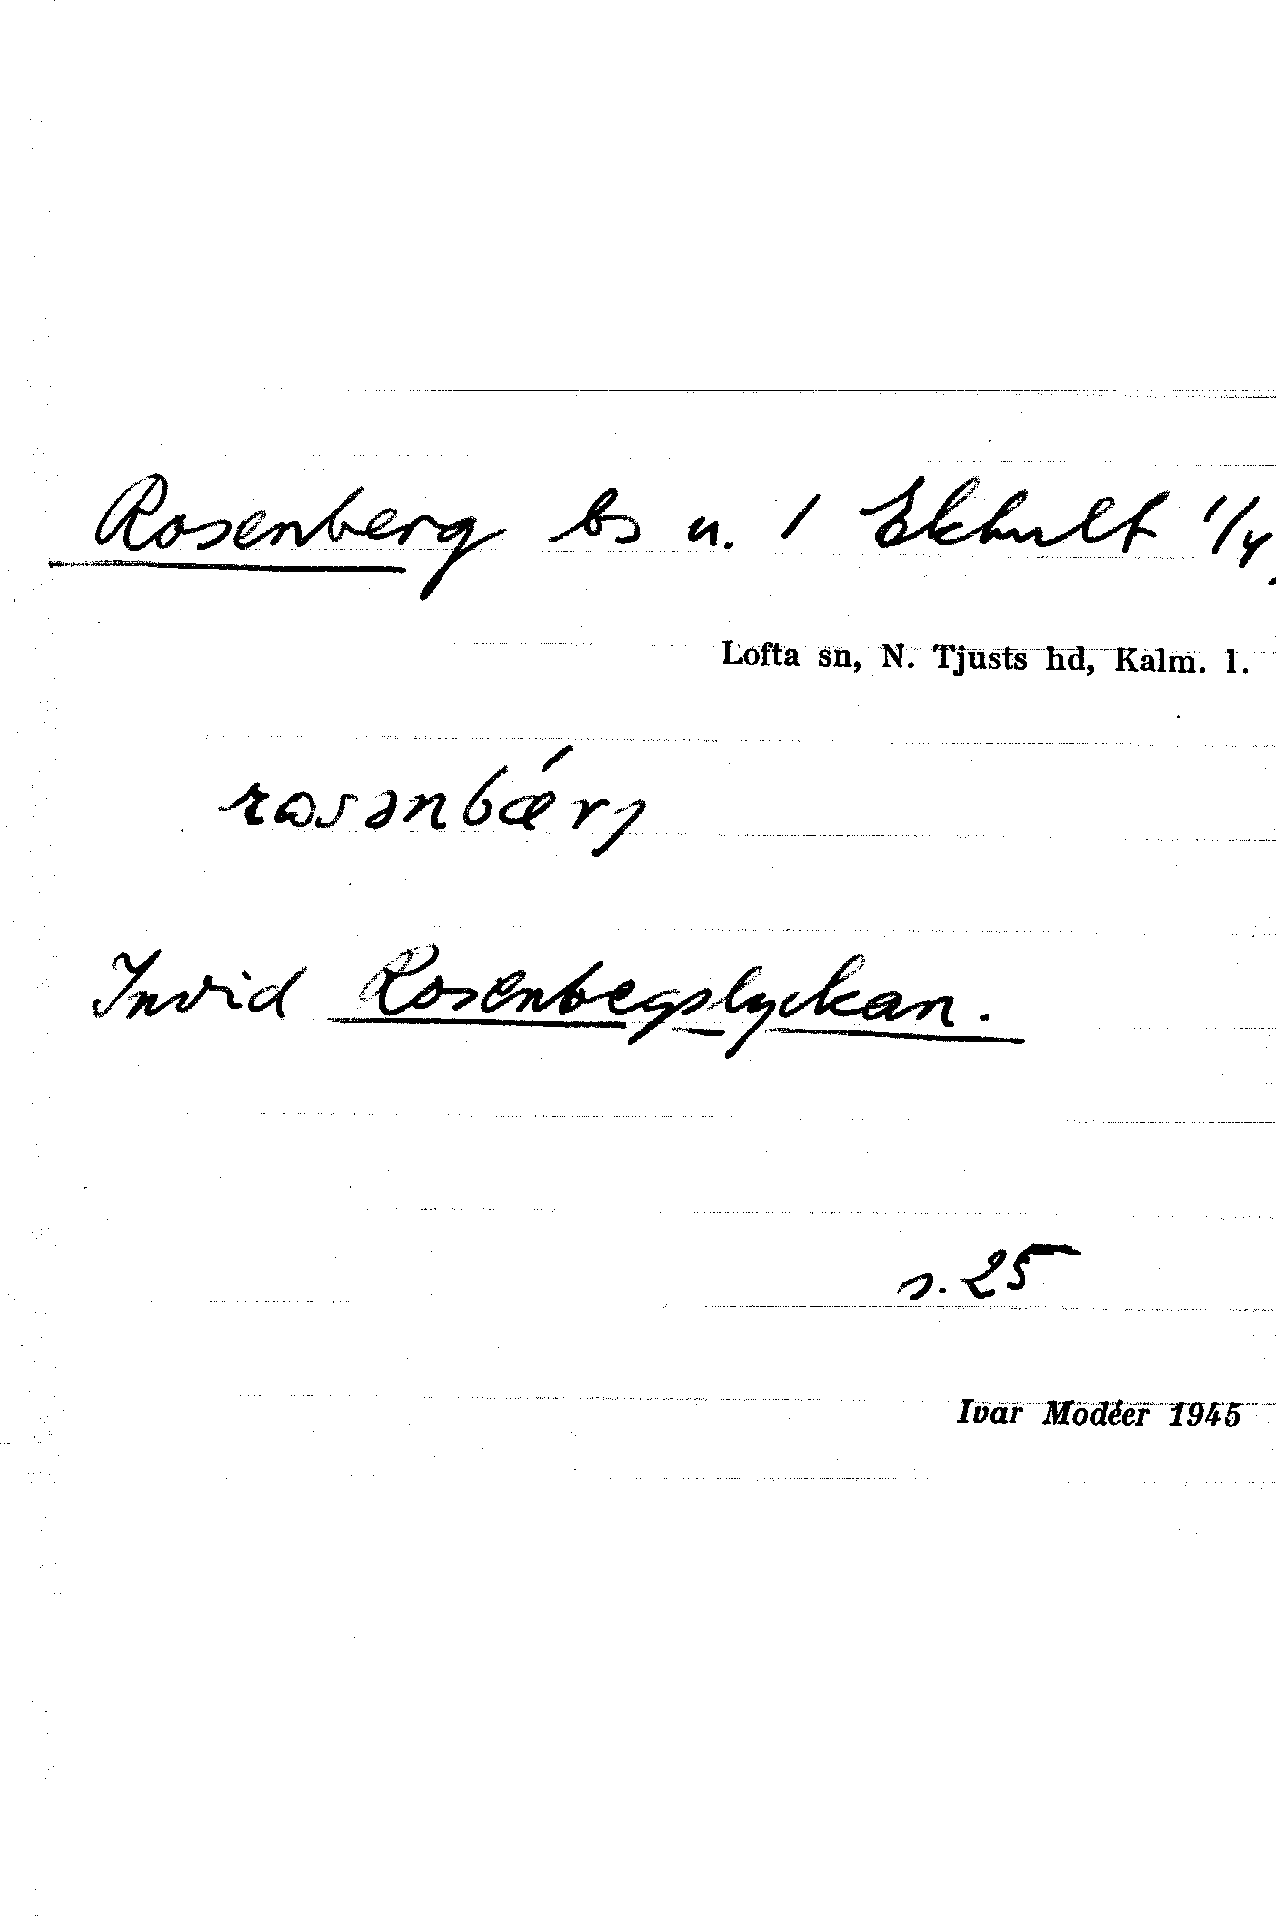 Rosenberg bs u. 1 Ekhult 1/4.
Lofta sn, N. Tjusts hd, Kalm. l.
rɷsənbǽrj
Invid Rosenbegslyckan.
s. 25
Ivar Modéer 1945